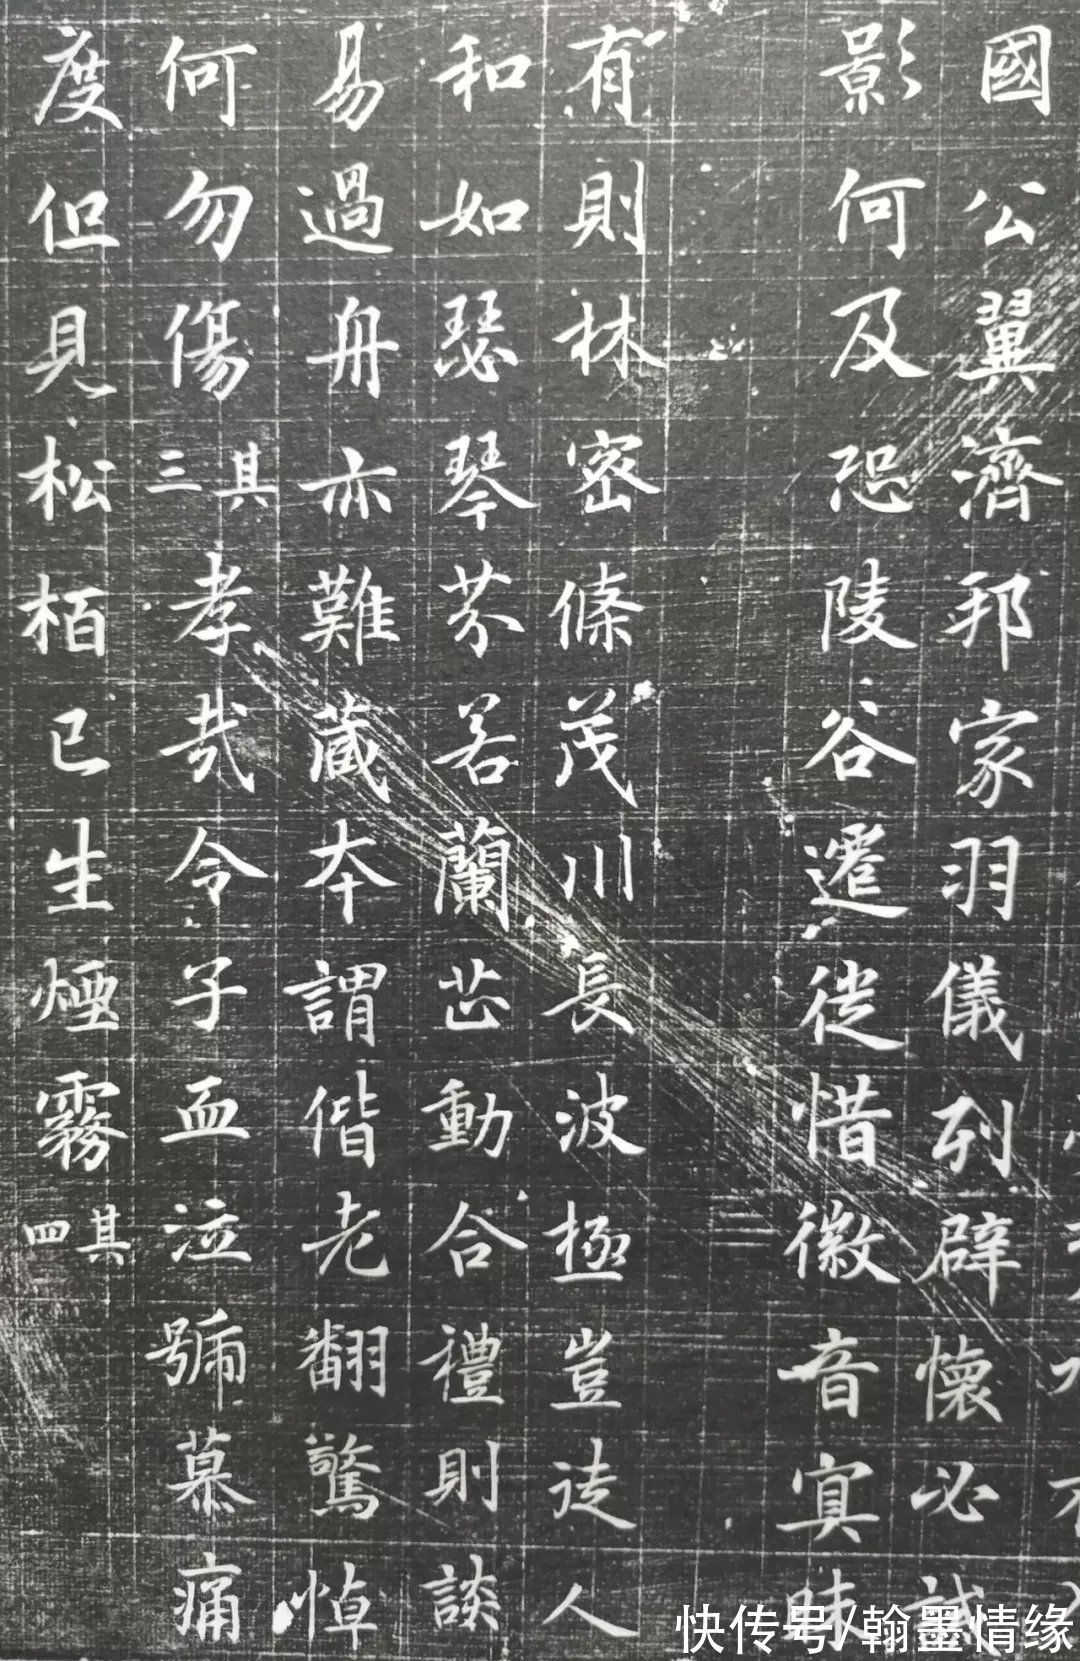 國公翼濟邦家羽儀列辟懷必誠
影何及恐陵谷遷徙惜徽音寘昧
有則林密條茂川長波極豈徒人
和如瑟琴芬若蘭芷動合禮則談
易過舟亦難藏本謂偕老翻驚悼
何勿傷其三孝哉令子血泣號慕痛
度但見松栢已生煙霧其四
快传号/翰墨情缘